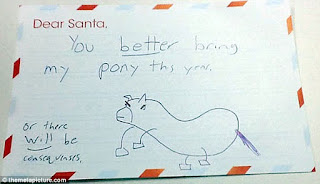 Dear Santa,
You better bring
my pony ths year.
or there
will be
consequinses.
© themetapicture.com